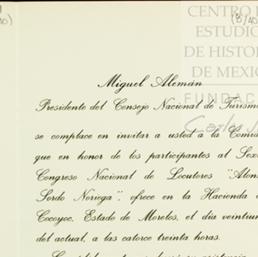 CENTRO
ESTUDIO
DE HISTOR
DE MEXIC
FUNDAC
Miguel Alemán
Presidente del Consejo Nacional de Turism
se complace en invitar a usted a la Comid
que en honor de los participantes al Sex
Congreso Nacional de Locutores "Alon
Sordo Noriega", ofrece en la Hacienda
Cocoyoc, Estado de Morelos, el día veintiun
del actual, a las catorce treinta horas.